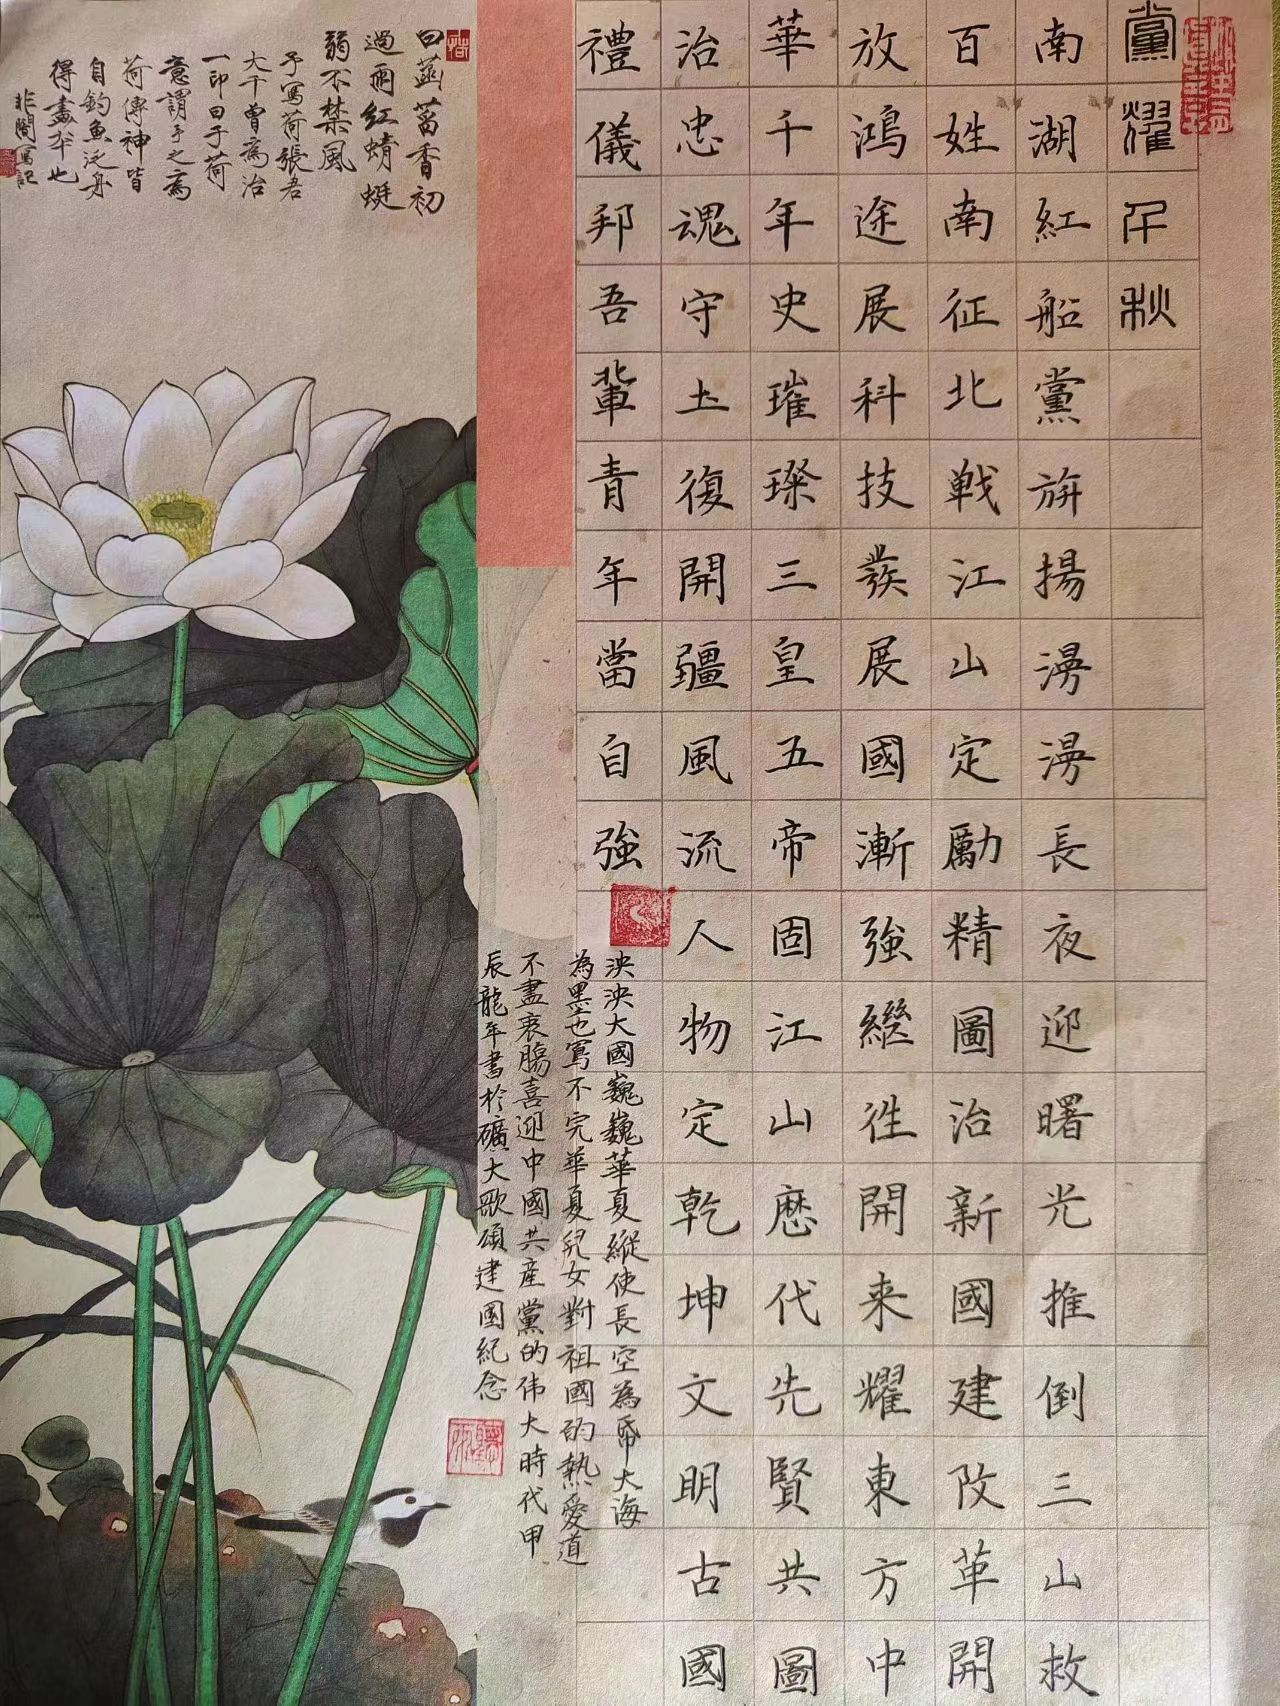 黨耀千秋
南湖紅船黨旂揚漫漫長夜迎曙光推倒三山救
百姓南征北戰江山定勵精圖治新國建改革開
放鴻途展科技發展國漸強繼往開来耀東方中
華千年史璀璨三皇五帝固江山歷代先賢共圖
治忠魂守土復開疆風流人物定乾坤文明古國
禮儀邦吾輩青年當自強
泱泱大國巍巍華夏縱使長空為帋大海
為墨也寫不完華夏兒女對祖國的熱愛道
不盡衷腸喜迎中國共產黨的伟大時代甲
辰龍年書於礦大歌頌建國紀念
曰菡萏香初
過雨紅蜻蜓
弱不禁風
予寫荷張君
大千曾為治
一印曰于荷
意謂于之為
荷傳神皆
自釣魚泛舟
得畫本也
非闇寫記